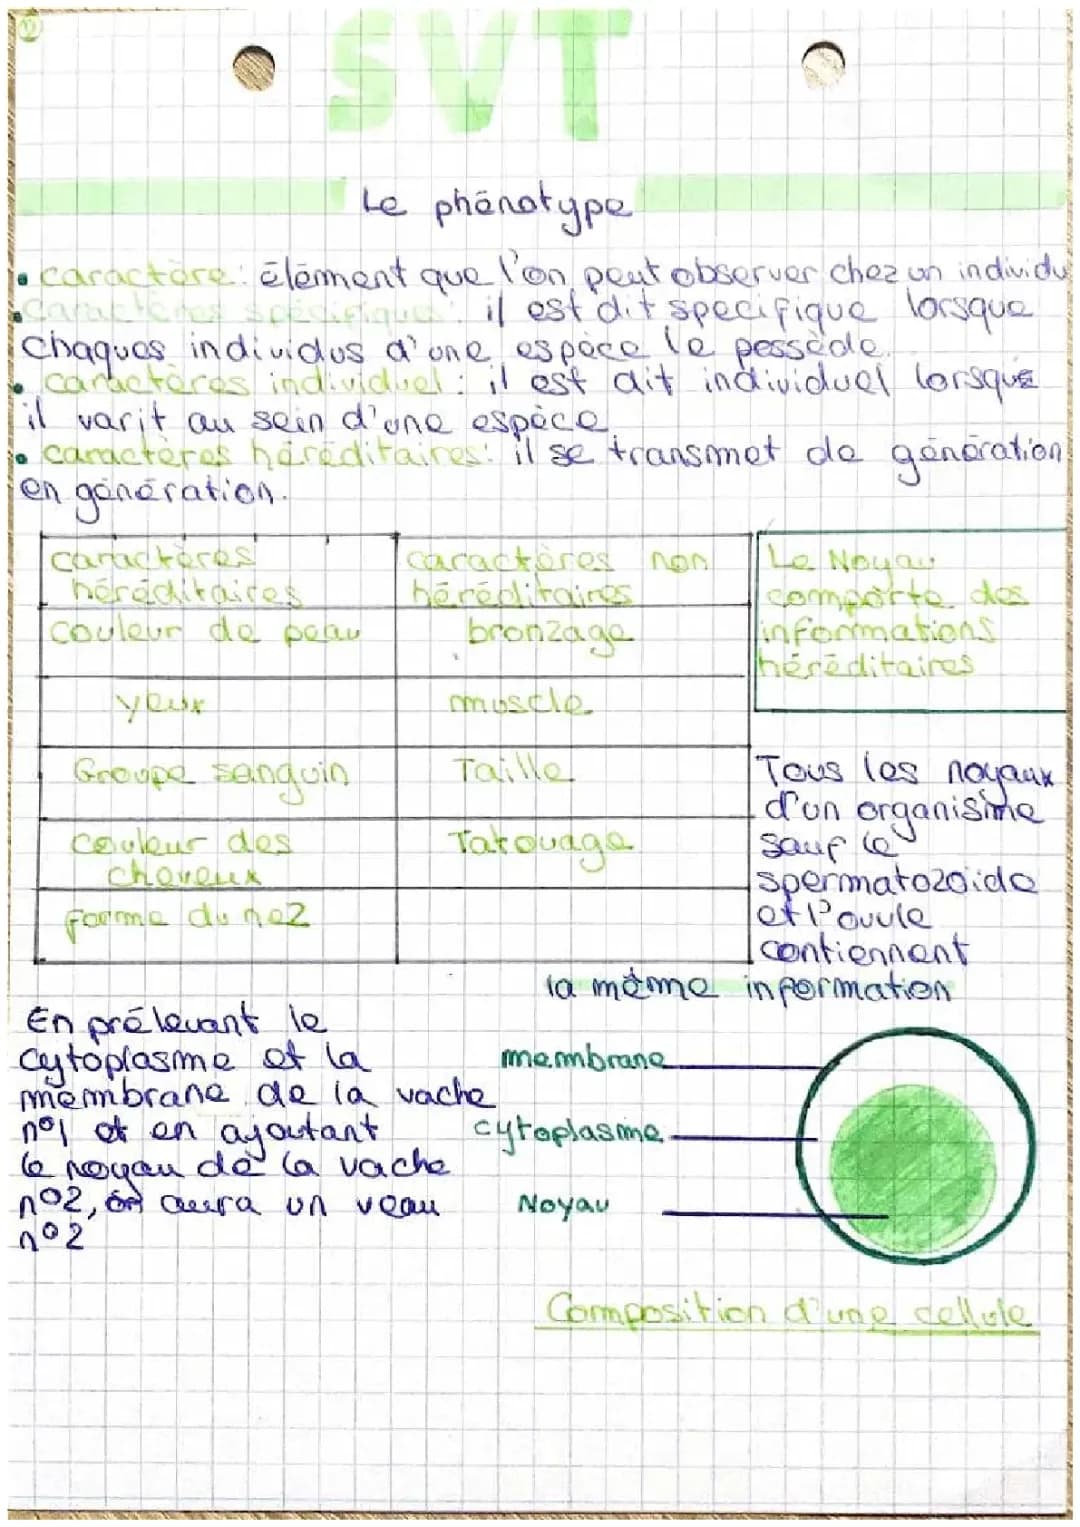 SVT
Le phénotype
• caractère: élément que l'on peut observer chez un individu
• caractères spécifiques: il est dit specifique lorsque
chaques individus d'une espèce le possède.
• caractères individuel: il est dit individuel lorsque
il varit au sein d'une espèce
• caractères héréditaires: il se transmet de génération
en génération.
caractères héréditaires
caractères non héréditaires
couleur de peau
bronzage
yeux
muscle
Groupe sanguin
Taille
couleur des cheveux
Tatouage
forme du nez
Le Noyau
comporte des
informations
héréditaires
Tous les noyaux
d'un organisme
sauf le
spermatozoide
et l'ovule
contiennent
la même information
En prélevant le
cytoplasme et la
membrane de la vache
n°1 et en ajoutant
le noyau de la vache
n°2, on aura un veau
n°2
membrane
cytoplasme
Noyau
Composition d'une cellule